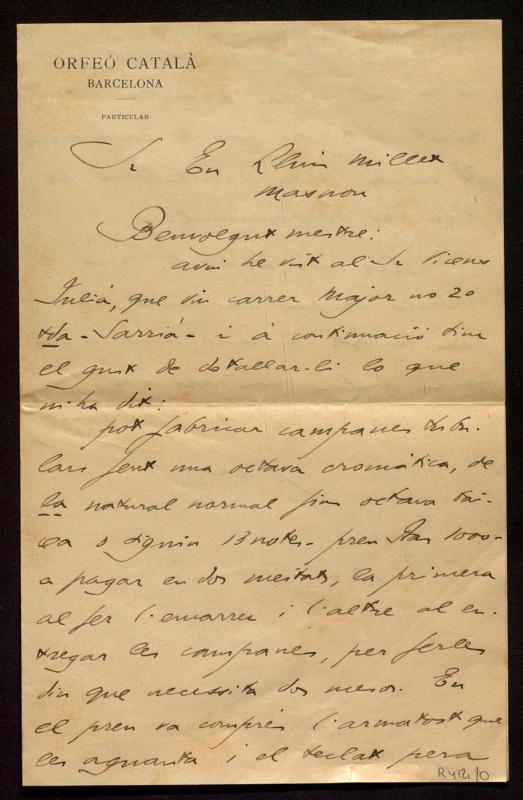 ORFEÓ CATALÀ
BARCELONA
PARTICULAR
Sr En Lluis Millet
Masnou
Benvolgut mestre:
avui he vist al Sr Vicens
Juliá, que viu carrer Major no 20
tda - Sarriá - i á continuació tinc
el gust de detallar-li lo que
m'ha dit:
pot fabricar campanes tubu-
lars fent una octava cromática, de
la natural normal fins octava
o siguin 13 notes - preu Ptas 1000 -
a pagar en dos meitats, la primera
al fer l'encarrec i l'altre al en-
tregar les campanes, per ferles
diu que necessita dos mesos. En
el preu va comprés l'armatost que
les aguanta i el teclat pera
R 4121/0